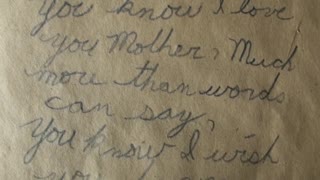 you know I love
you Mother, Much
more than words
can say,
You know I wish
you